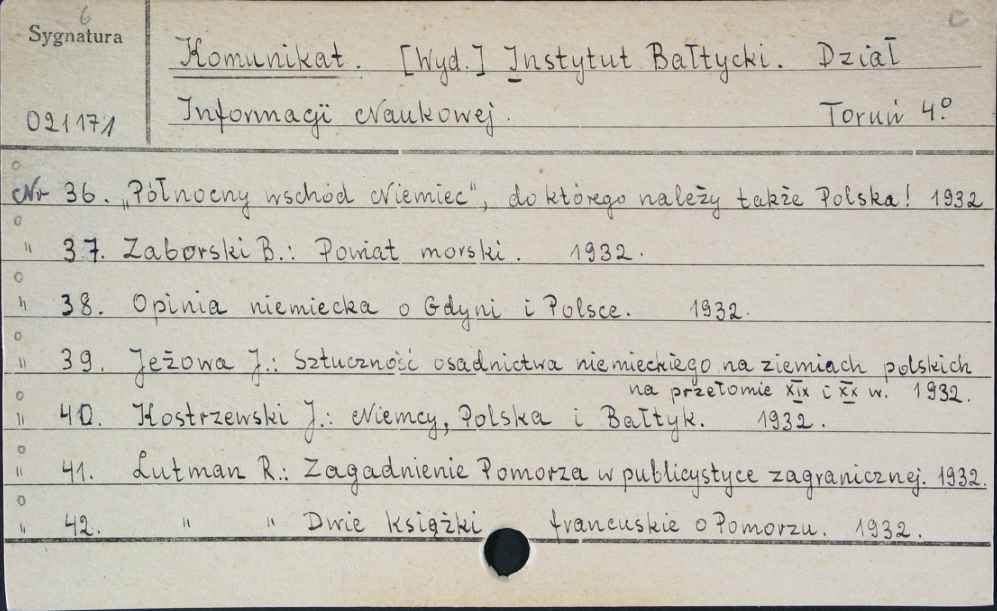 6 C
Sygnatura
Komunikat. [Wyd.] Instytut Bałtycki. Dział
021171 Informacji Naukowej. Toruń 4.º
Nr 36. „Północny wschód Niemiec", do którego należy także Polska! 1932
" 37. Zaborski B.: Powiat morski. 1932.
" 38. Opinia niemiecka o Gdyni i Polsce. 1932.
" 39. Jeżowa J.: Sztuczność osadnictwa niemieckiego na ziemiach polskich
na przełomie XIX i XX w. 1932.
" 40. Kostrzewski J.: Niemcy, Polska i Bałtyk. 1932.
" 41. Lutman R.: Zagadnienie Pomorza w publicystyce zagranicznej. 1932.
" 42. " " Dwie książki francuskie o Pomorzu. 1932.